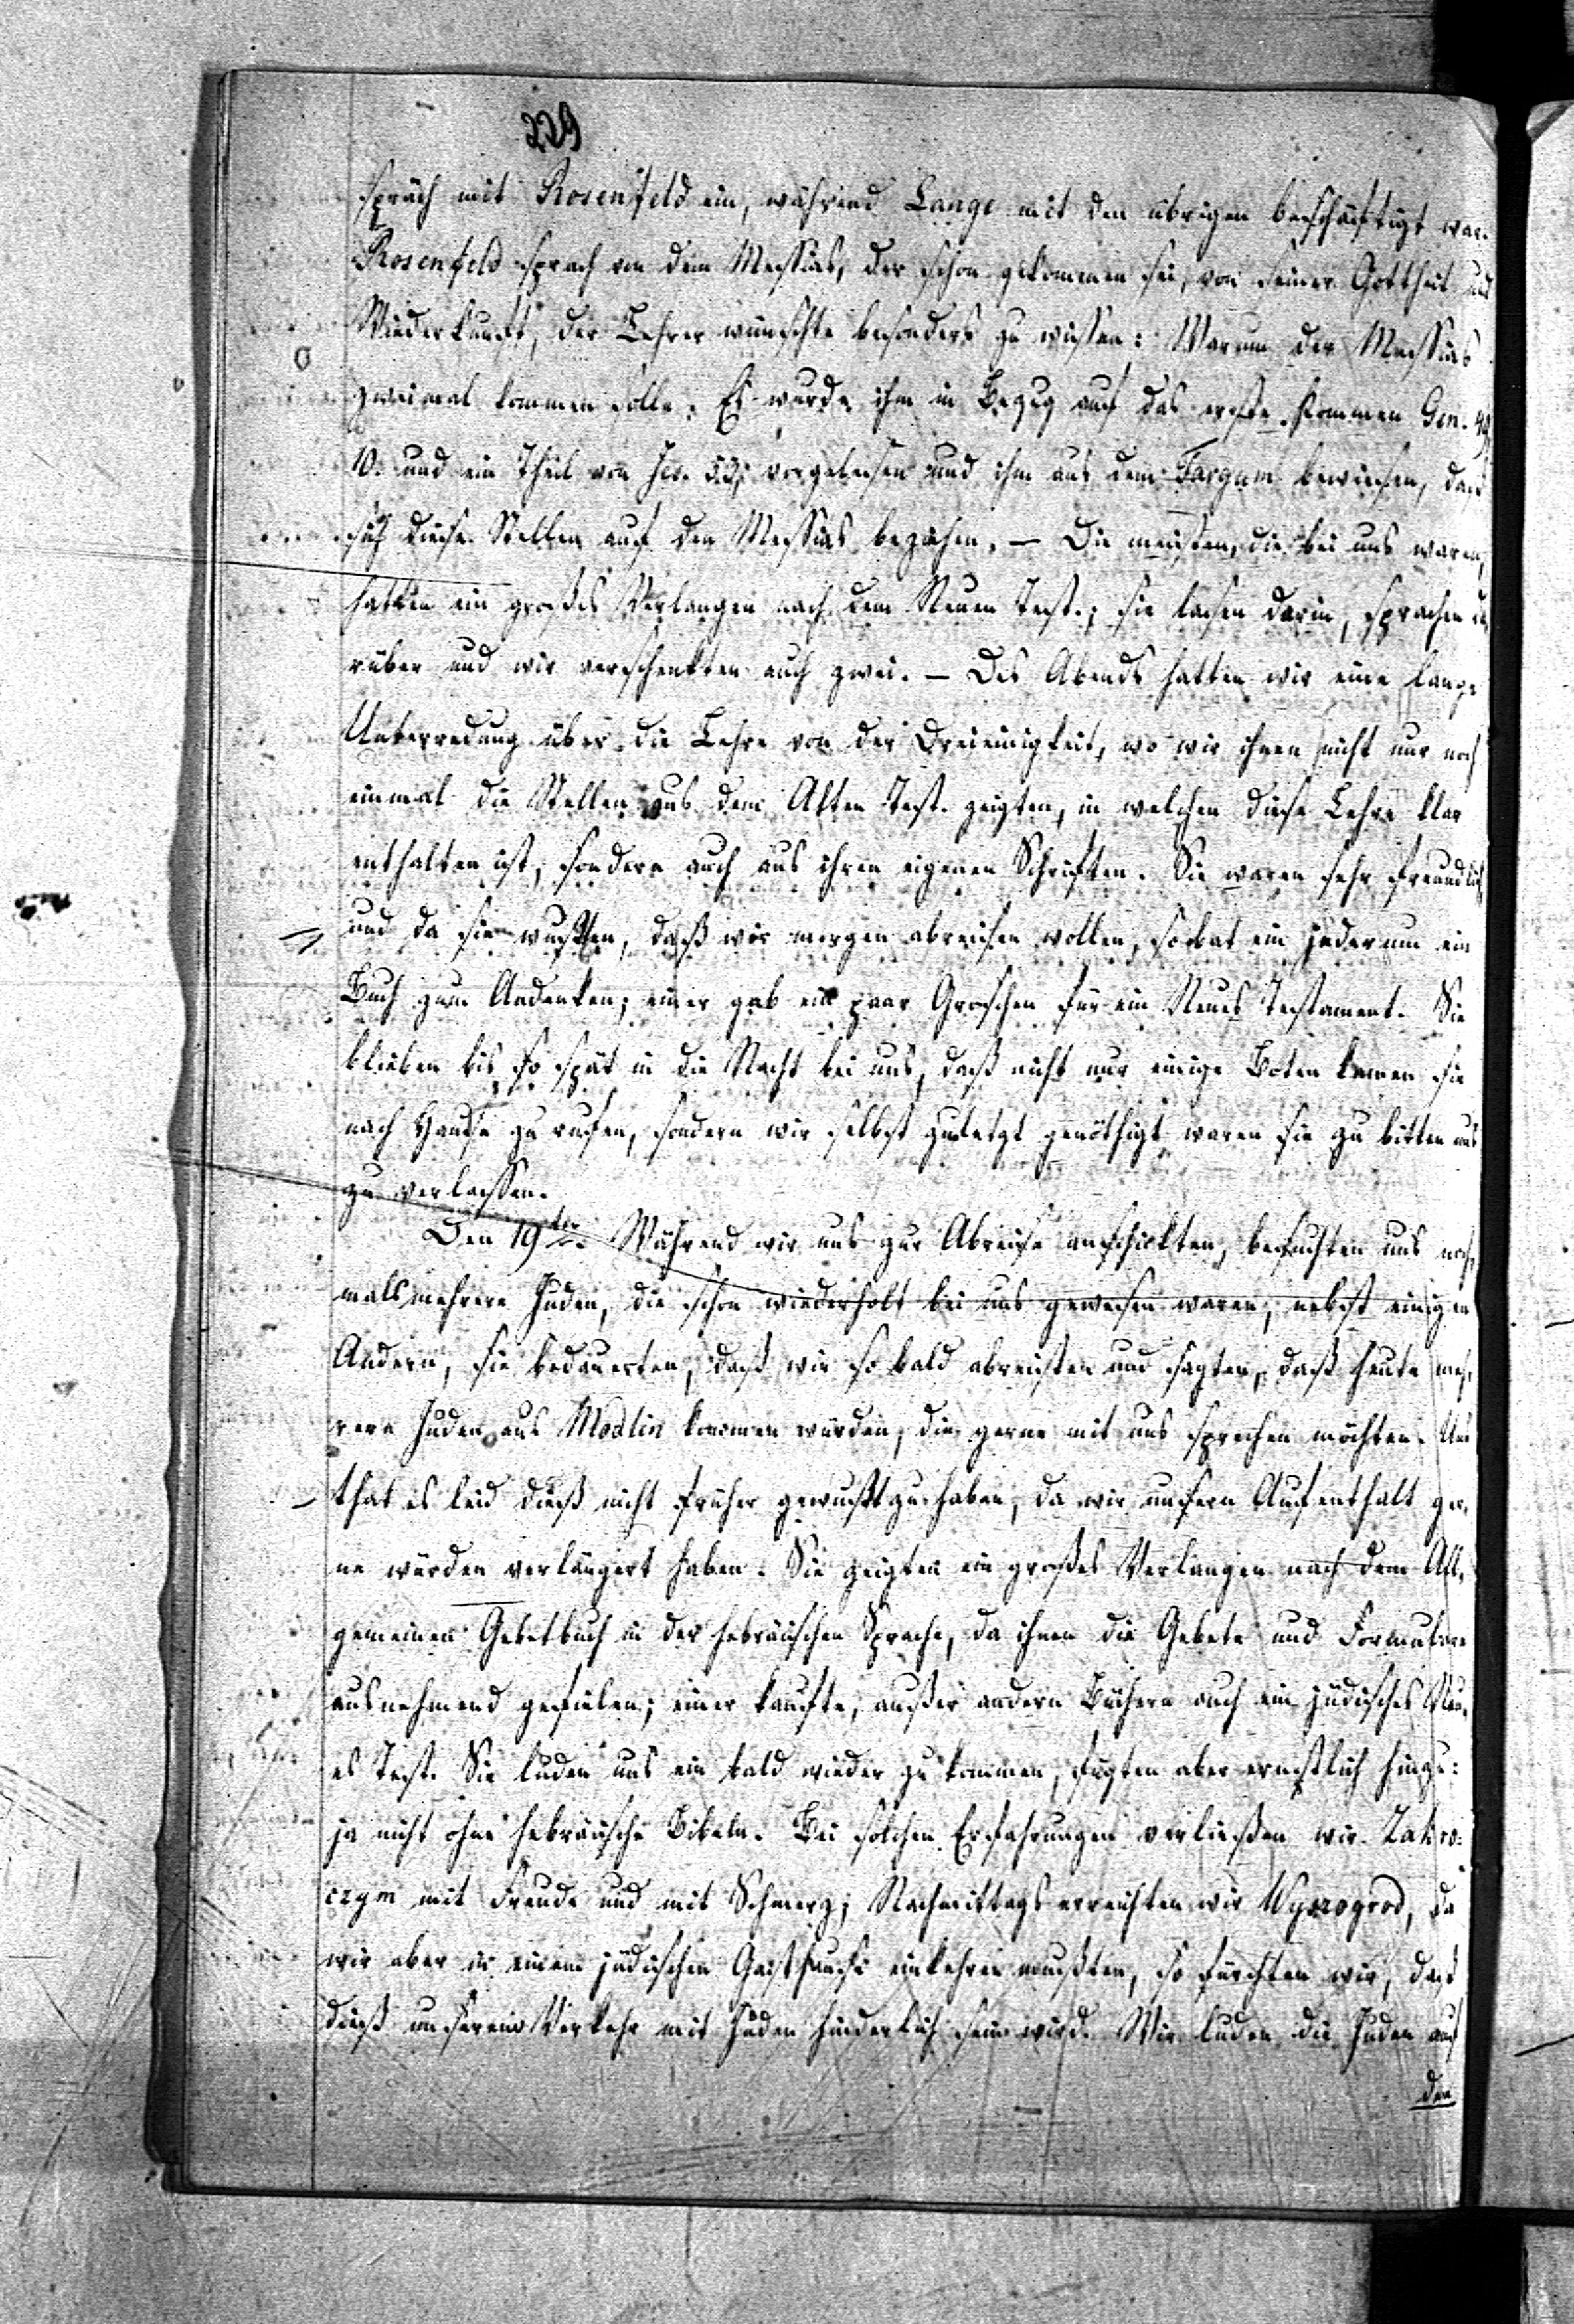 229
spräch mit Rosenfeld ein, während Lange mit den übrigen beschäftigt war.
Rosenfeld sprach von dem Messias, der schon gekommen sei, von seiner Gottheit und
Wiederkunft, der Lehrer wünschte besonders zu wissen: Warum der Messias
zweimal kommen solle. Es wurde ihm in Bezug auf das erste Kommen Gen. 49,
10. und ein Theil von Jes. 53, vorgelesen und ihm aus dem Targum bewiesen, daß
sich diese Stellen auf den Messias beziehen. — Die meisten, die bei uns waren,
hatten ein großes Verlangen nach dem Neuen Test.; sie lasen darin, sprachen da
rüber und wir verschenkten auch zwei. — Des Abends hatten wir eine lange
Unterredung über die Lehre von der Dreieinigkeit, wo wir ihnen nicht nur noch
einmal die Stellen aus dem Alten Test. zeigten, in welchen diese Lehre klar
enthalten ist, sondern auch aus ihren eigenen Schriften. Sie waren sehr freundlich
und da sie wußten, daß wir morgen abreisen wollen, so bat ein jeder um ein
Buch zum Andenken; einer gab ein paar Groschen für ein Neues Testament. Sie
blieben bis so spät in die Nacht bei uns, daß nicht nur einige Boten kamen sie
nach Hause zu rufen, sondern wir selbst zuletzt genöthigt waren sie zu bitten uns
zu verlassen.
Den 19ten Während wir uns zur Abreise anschickten, besuchten uns noch
mals mehrere Juden, die schon wiederholt bei uns gewesen waren, nebst einigen
Andern, sie bedauerten, daß wir so bald abreisten und sagten, daß heute meh
rere Juden aus Modlin kommen würden, die gerne mit uns sprechen möchten. Uns
that es leid dieß nicht früher gewußt zu haben, da wir unsern Aufenthalt ger,
ne würden verlängert haben. Sie zeigten ein großes Verlangen nach dem All,
gemeinen Gebetbuch in der hebräischen Sprache, da ihnen die Gebete und Formulare
ausnehmend gefielen; einer kaufte, außer andern Büchern auch ein jüdisches Neu,
es Test. Sie luden uns ein bald wieder zu kommen, fügten aber ernstlich hinzu:
ja nicht ohne hebräische Bibeln. Bei solchen Erfahrungen verließen wir Zakro:
czym mit Freude und mit Schmerz; Nachmittags erreichten wir Wyszogrod, da
wir aber in einem jüdischen Gasthause einkehren mußten, so fürchten wir, daß
dieß unserem Verkehr mit Juden hinderlich sein wird. Wir luden die Juden auf
den